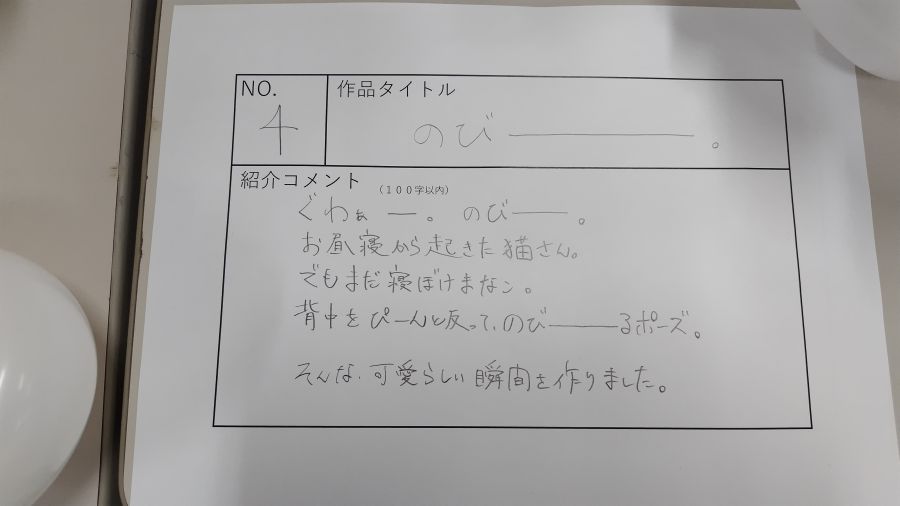 NO.
4
作品タイトル
のび――――――。
紹介コメント (100字以内)
ぐわぁ ―。 のび――。
お昼寝から起きた猫さん。
でもまだ寝ぼけまなこ。
背中をぴーんと反って、のび―――るポーズ。
そんな、可愛らしい瞬間を作りました。